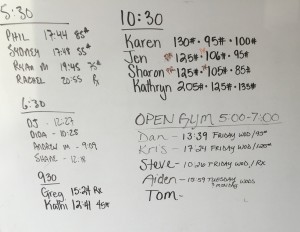 5:30
PHIL 17:44 85#
SMOREY 17:48 55#
RYAN M 19:45 75#
RACHEL 20:55 Rx
6:30
DJ - 12:27
DIDA - 10:28
ANDREW M - 9:09
SHANE - 12:18
930
Greg 15:24 RX
Kathi 12:41 45#
10:30
Karen 130# · 95# · 100#
Jen 125# · 106# · 95#
Sharon 125# · 105# · 85#
Kathryn 205# · 125# · 135#
OPEN GYM 5:00-7:00
Dan - 13:39 FRIDAY WOD/95#
Kris - 17:24 FRIDAY WOD/
Steve - 10:26 FRIDAY WOD/RX
Aiden - 15:59 TUESDAY WOD
Tom -